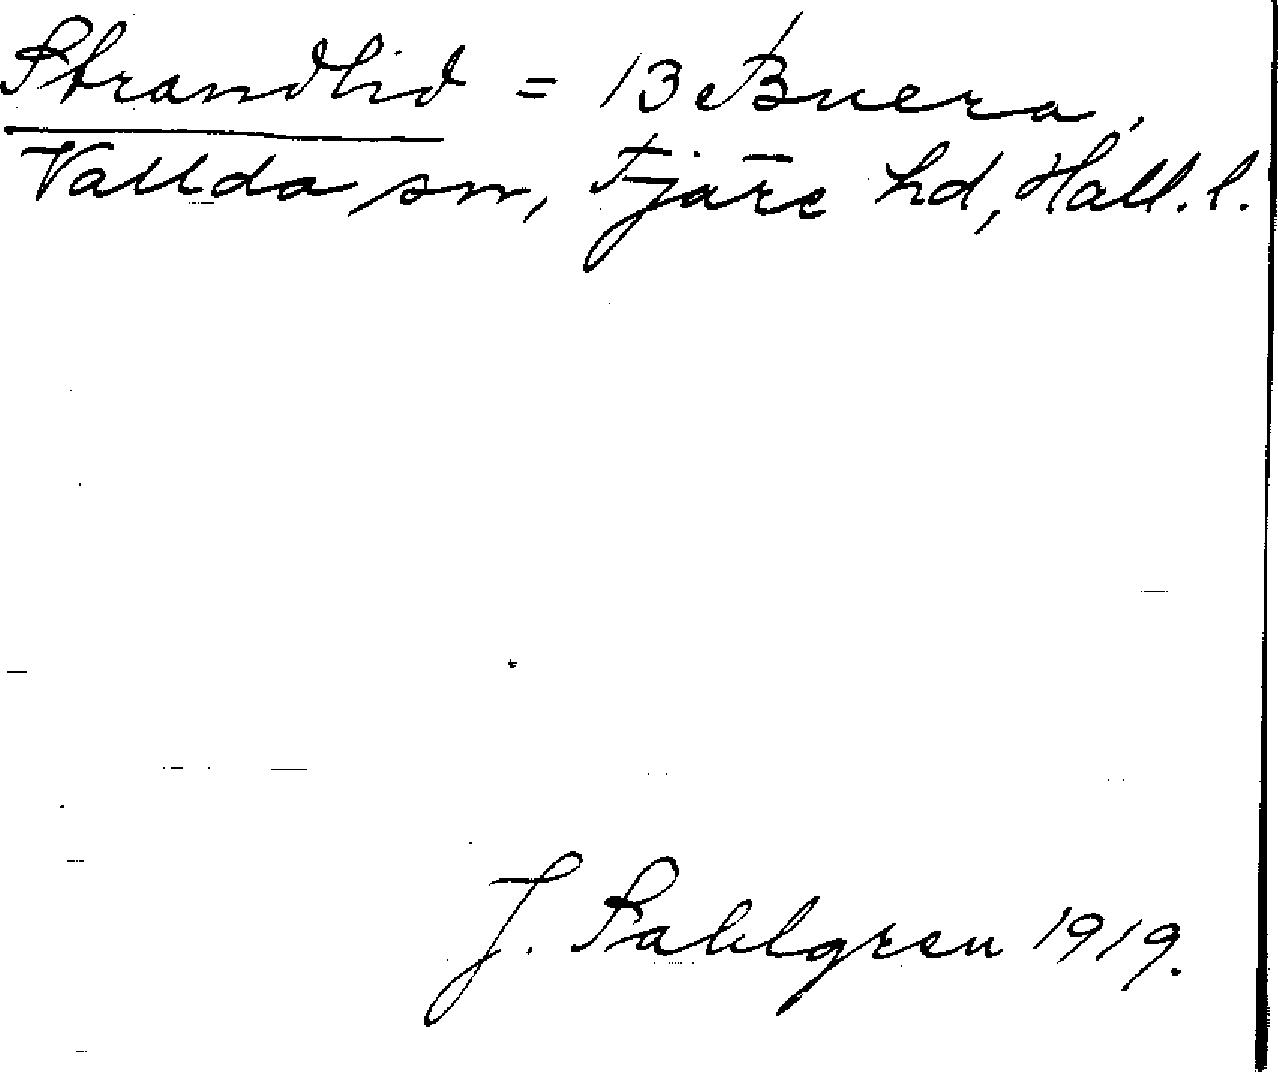 Strandlid = 13 Buera,
Vallda sn, Fjäre hd, Hall. l.
J. Sahlgren 1919.